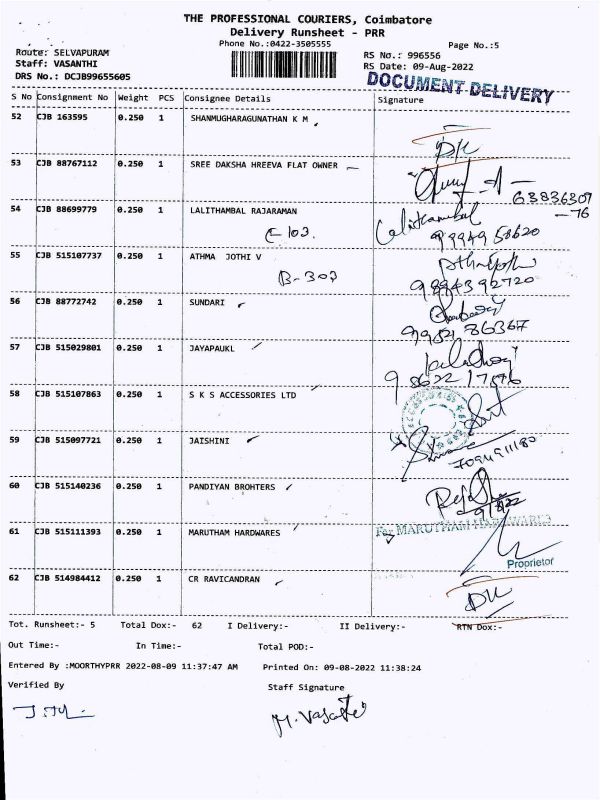 THE PROFESSIONAL COURIERS, Coimbatore
Delivery Runsheet - PRR
Phone No.:0422-3505555
Page No.:5
Route: SELVAPURAM
RS No.: 996556
Staff: VASANTHI
RS Date: 09-Aug-2022
DRS No.: DCJB99655605
DOCUMENT DELIVERY
S No Consignment No Weight PCS Consignee Details Signature
52 CJB 163595 0.250 1 SHANMUGHARAGUNATHAN K M
53 CJB 88767112 0.250 1 SREE DAKSHA HREEVA FLAT OWNER
63836307
-76
54 CJB 88699779 0.250 1 LALITHAMBAL RAJARAMAN
Lalithambal
C-103.
99949 58620
55 CJB 515107737 0.250 1 ATHMA JOTHI V
B-303
9894392720
56 CJB 88772742 0.250 1 SUNDARI
57 CJB 515029801 0.250 1 JAYAPAUKL
58 CJB 515107863 0.250 1 S K S ACCESSORIES LTD
59 CJB 515097721 0.250 1 JAISHINI
60 CJB 515140236 0.250 1 PANDIYAN BROHTERS
61 CJB 515111393 0.250 1 MARUTHAM HARDWARES
For MARUTHAM HARDWARES
Proprietor
62 CJB 514984412 0.250 1 CR RAVICANDRAN
Tot. Runsheet:- 5 Total Dox:- 62 I Delivery:- II Delivery:- RTN Dox:-
Out Time:- In Time:- Total POD:-
Entered By :MOORTHYPRR 2022-08-09 11:37:47 AM Printed On: 09-08-2022 11:38:24
Verified By Staff Signature
M. Vasanthi